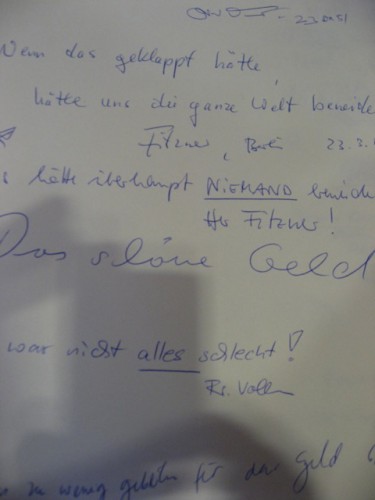 Wenn das geklappt hätte,
hätte uns die ganze Welt beneide
Fitzner, Berlin 23.3.
s hätte überhaupt NIEMAND beneide
Herr Fitzner!
Das schöne Geld
war nicht alles schlecht!
zu wenig geblieben für das Geld